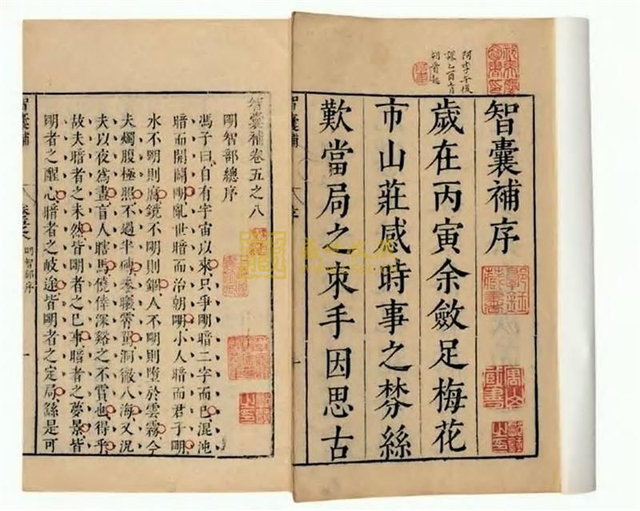 智囊補序
歲在丙寅余斂足梅花
市山莊感時事之棼絲
歎當局之束手因思古
智囊補卷五之八
明智部總序
馮子曰自有宇宙以來只爭明暗二字而已混沌
暗而開闢明亂世暗而治朝明小人暗而君子明
水不明則腐鏡不明則錮人不明則墮於雲霧今
夫燭腹極照不過半磚朱曦霄駕洞徹八海又況
夫以夜為晝盲人瞎馬僥倖深谿之不賈也得乎
故夫暗者之未然皆明者之已事暗者之夢景皆
明者之醒心暗者之歧途皆明者之定局繇是可
智囊補
明智部序
一